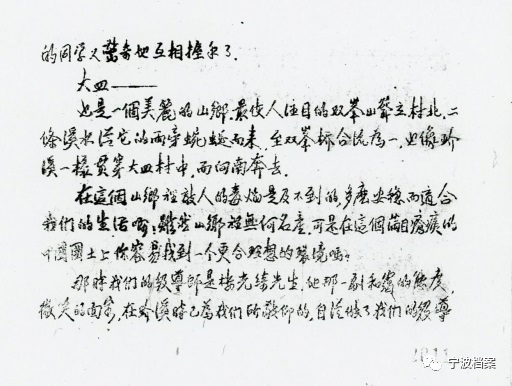 的同学又惊奇地互相撞多了.
大皿——
也是一個美麗的山鄉,最使人注目的双峯山聳立村北,二
條溪水沿它的两旁蜿蜒而来,至双峯桥合流為一,也像蛟
溪一樣貫穿大皿村中,而向南奔去.
在這個山鄉裡敵人的毒焰是及不到的,多麽安穩而適合
我們的生活啊;雖然山鄉裡無何名產,可是在這個满目瘡痍的
中國國土上你容易找到一个更合理想的環境嗎?
那時我們的級導師是楊光培先生,他那一副和藹的態度,
微笑的面容,在 溪時已為我們所敬仰的,自從做了我們的級導
宁波档案